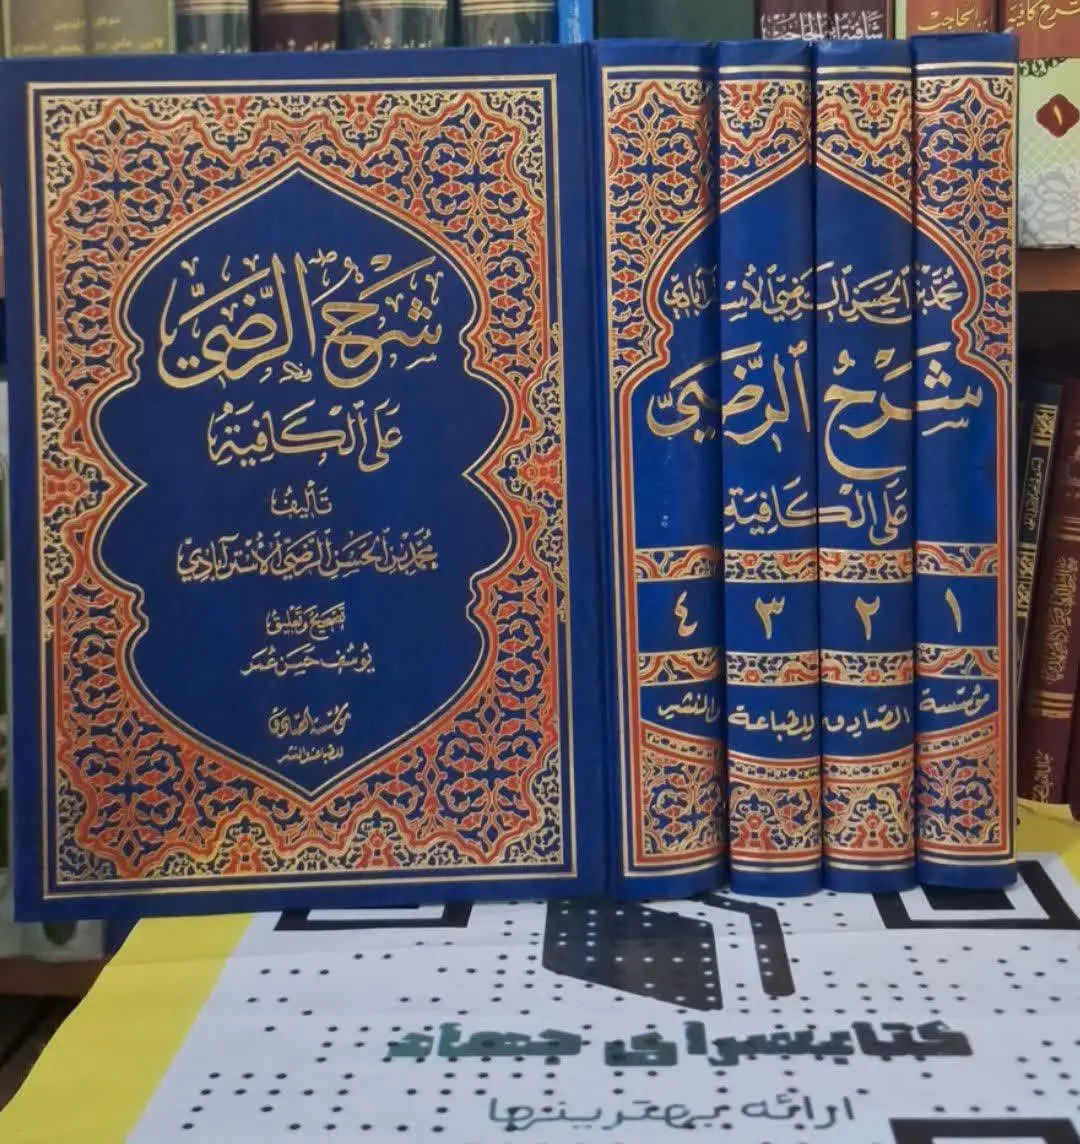 شرح الرضي
على الكافية
تأليف
محمد بن الحسن الرضي الأسترآبادي
تصحيح وتعليق
يوسف حسن عمر
مؤسسة الصادق
للطباعة والنشر
محمد بن الحسن الرضي الأسترآبادي
شَرحُ الرَّضيّ
عَلَى الكَافِيَة
١
٢
٣
٤
مؤسسة الصادق للطباعة والنشر
شافية ابن الحاجب
ابن الحاجب
شرح كافية
١
کتابسرای جهاد
ارائه بهترینها